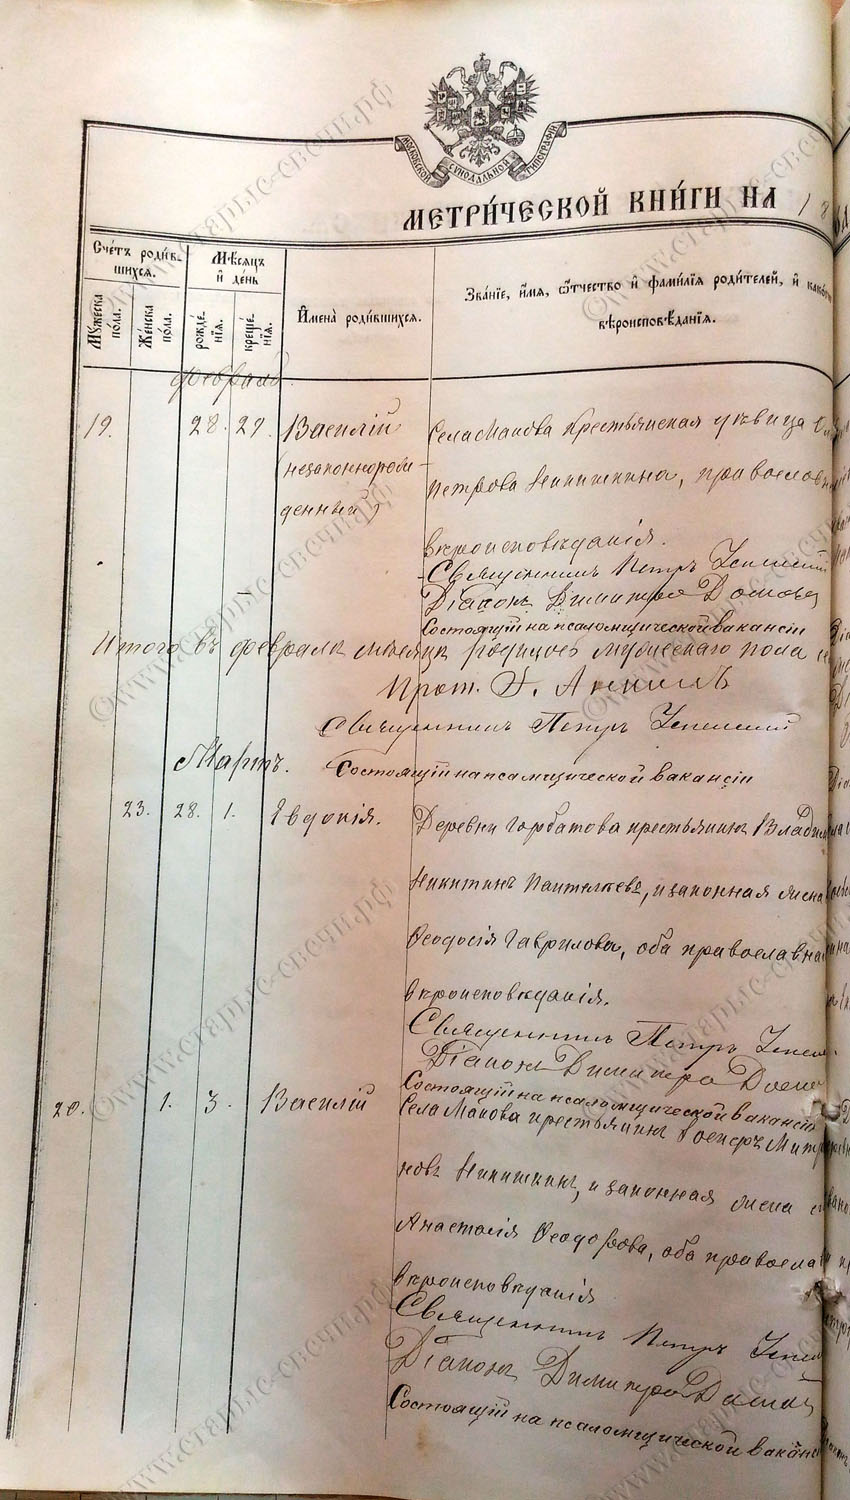 МОСКОВСКОЙ СУНОДАЛЬНОЙ ТИПОГРАФІИ
МЕТРИ́ЧЕСКОЙ КНИ́ГИ НА 18
Счéтъ роди́в-
шихся.
Мѣ́сяцъ
и҆ де́нь
Мꙋ́жеска по́ла.
Же́нска по́ла.
рожде́нїѧ.
креще́нїѧ.
И҆мена̀ роди́вшихся.
Зва́нїе, и҆́мѧ, ѻ҆́тчество и҆ фами́лїѧ роди́телей, и҆ како́гѡ
вѣроисповѣ́данїѧ.
Февраль.
19. 28. 29. Василій
(незаконнорож-
денный)
Села Макова крестьянская дѣвица
Петрова Никишкина, православн
вѣроисповѣданія.
Священникъ Петръ Успенскій
Діаконъ Димитрій
Состоящій на псаломщической вакансіи
Итого въ февралѣ мѣсяцѣ родилось мужескаго пола
Прот.
Священникъ Петръ Успенскій
Мартъ.
Состоящій на псаломщической вакансіи
23. 28. 1. Евдокія.
Деревни Горбатова крестьянинъ Владим
Никитинъ Пантелѣевъ, и законная жена
Ѳеодосія Гаврилова, оба православна
вѣроисповѣданія.
Священникъ Петръ Успен
Діаконъ Димитрій
Состоящій на псаломщической вакансіи
20. 1. 3. Василій
Села Макова крестьянинъ Іосифъ Митр
новъ Никишкинъ, и законная жена е
Анастасія Ѳеодорова, оба правосла
вѣроисповѣданія
Священникъ Петръ Успен
Діаконъ Димитрій
Состоящій на псаломщической вакан
©www.старые-свечи.рф